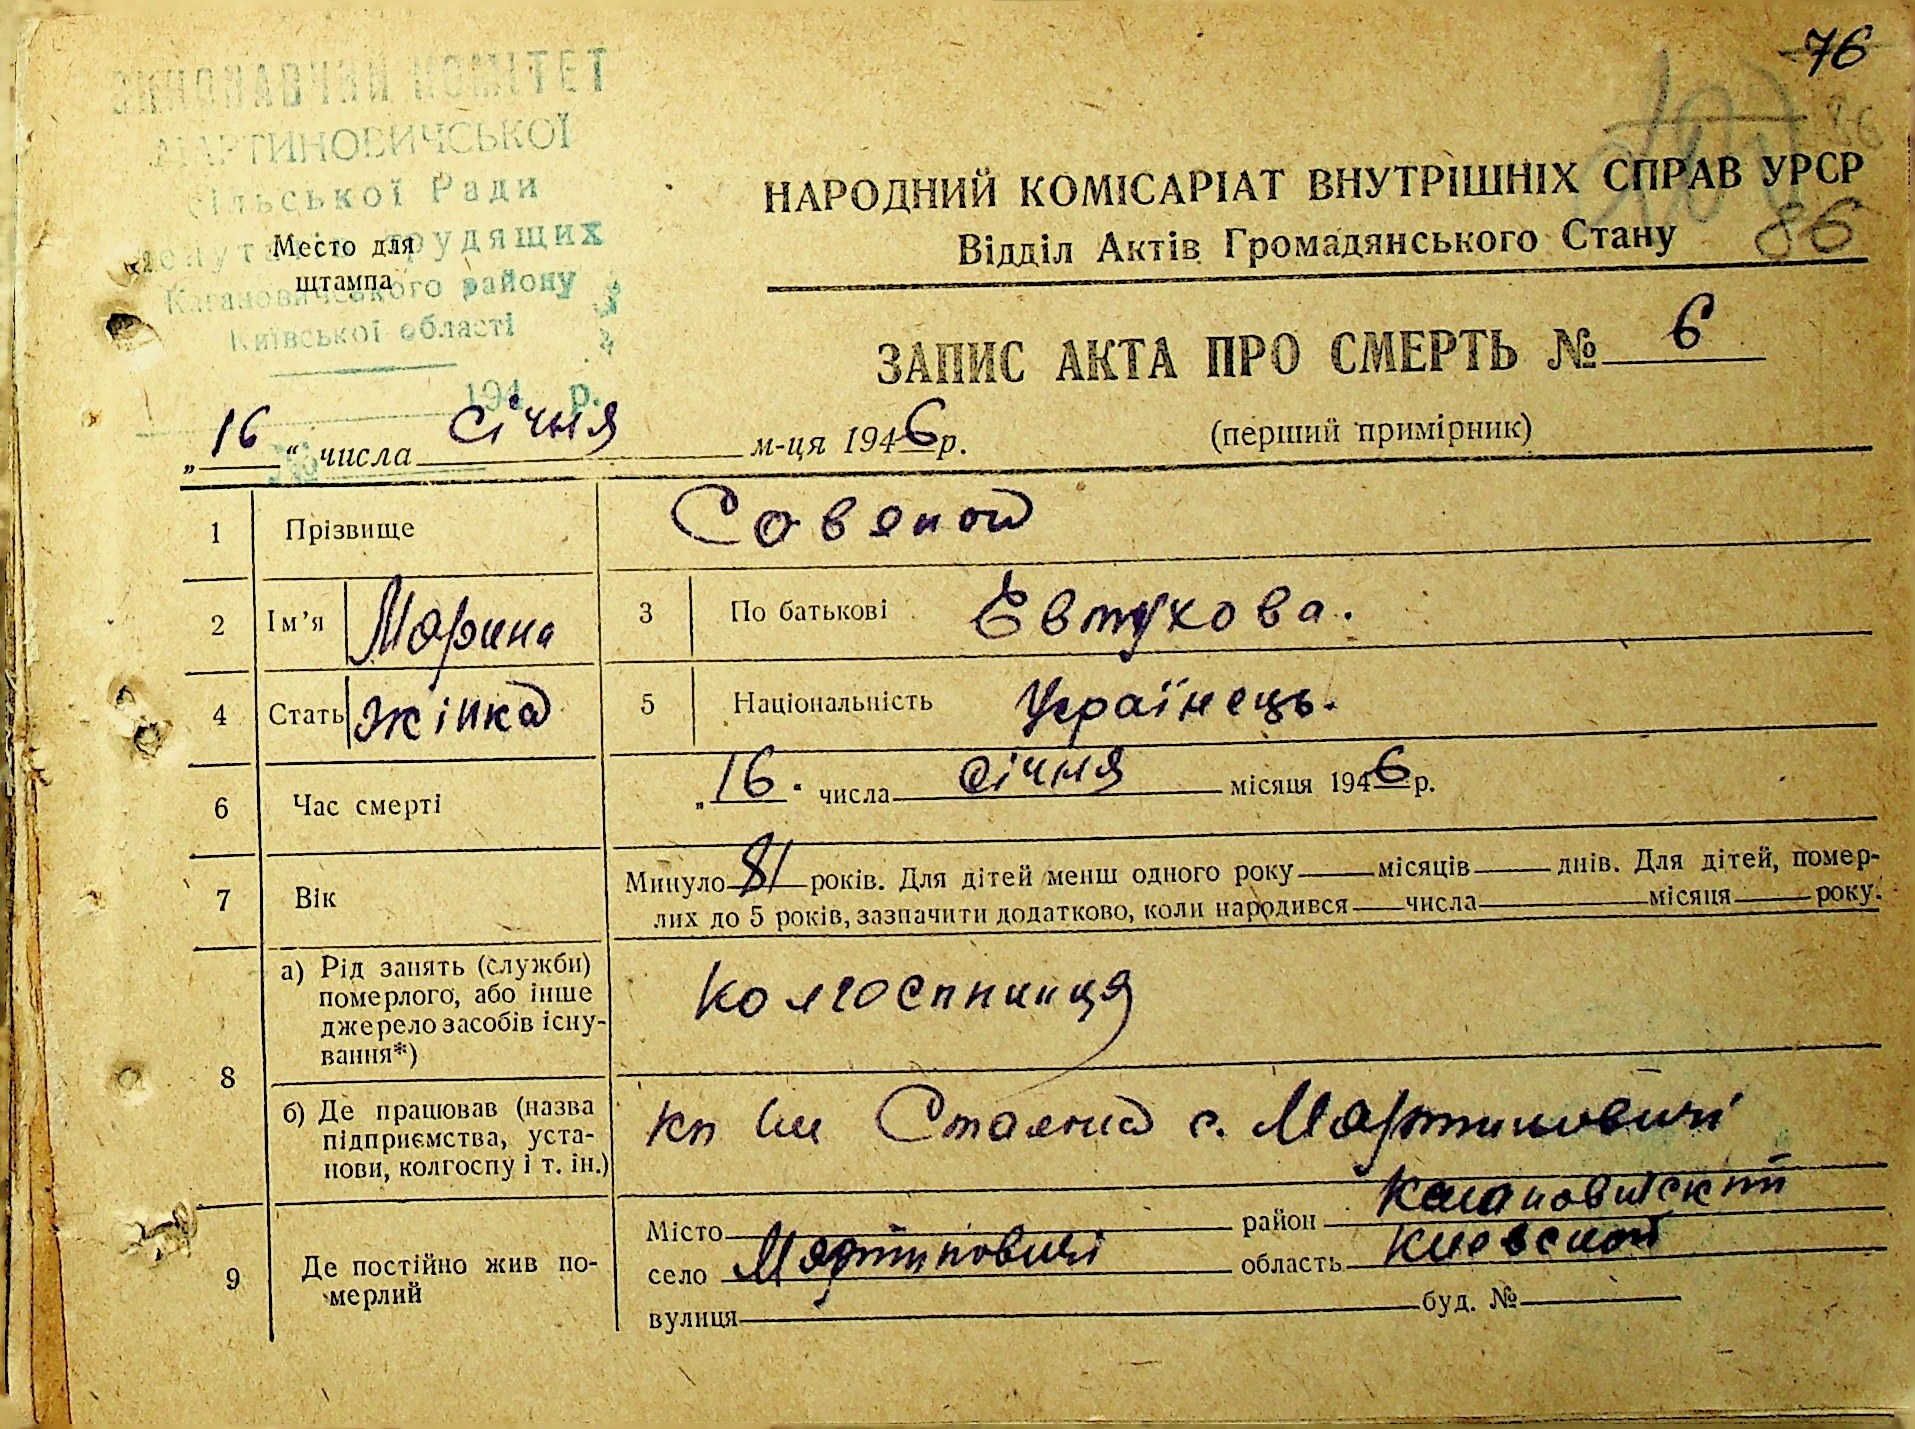 76
86
86
ВИКОНАВЧИЙ КОМІТЕТ
МАРТИНОВИЧСЬКОЇ
Сільської Ради
депутатів трудящих
Кагановичського району
Київської області
194 р.
Место для
штампа
НАРОДНИЙ КОМІСАРІАТ ВНУТРІШНІХ СПРАВ УРСР
Відділ Актів Громадянського Стану
ЗАПИС АКТА ПРО СМЕРТЬ № 6
(перший примірник)
„16“ числа січня м-ця 1946 р.
1 Прізвище
2 Ім’я Марина 3 По батькові Евтухова.
4 Стать жінка 5 Національність Українець.
6 Час смерті „16“ числа січня місяця 1946 р.
7 Вік Минуло 81 років. Для дітей менш одного року місяців днів. Для дітей, помер-
лих до 5 років, зазначити додатково, коли народився числа місяця року.
8 а) Рід занять (служби)
померлого, або інше
джерело засобів існу-
вання*)
колгоспниця
б) Де працював (назва
підприємства, уста-
нови, колгоспу і т. ін.)
кп им Сталина с. Мартиновичі
9 Де постійно жив по-
мерлий
Місто район
село Мартиновичі область Киевской
вулиця буд. №